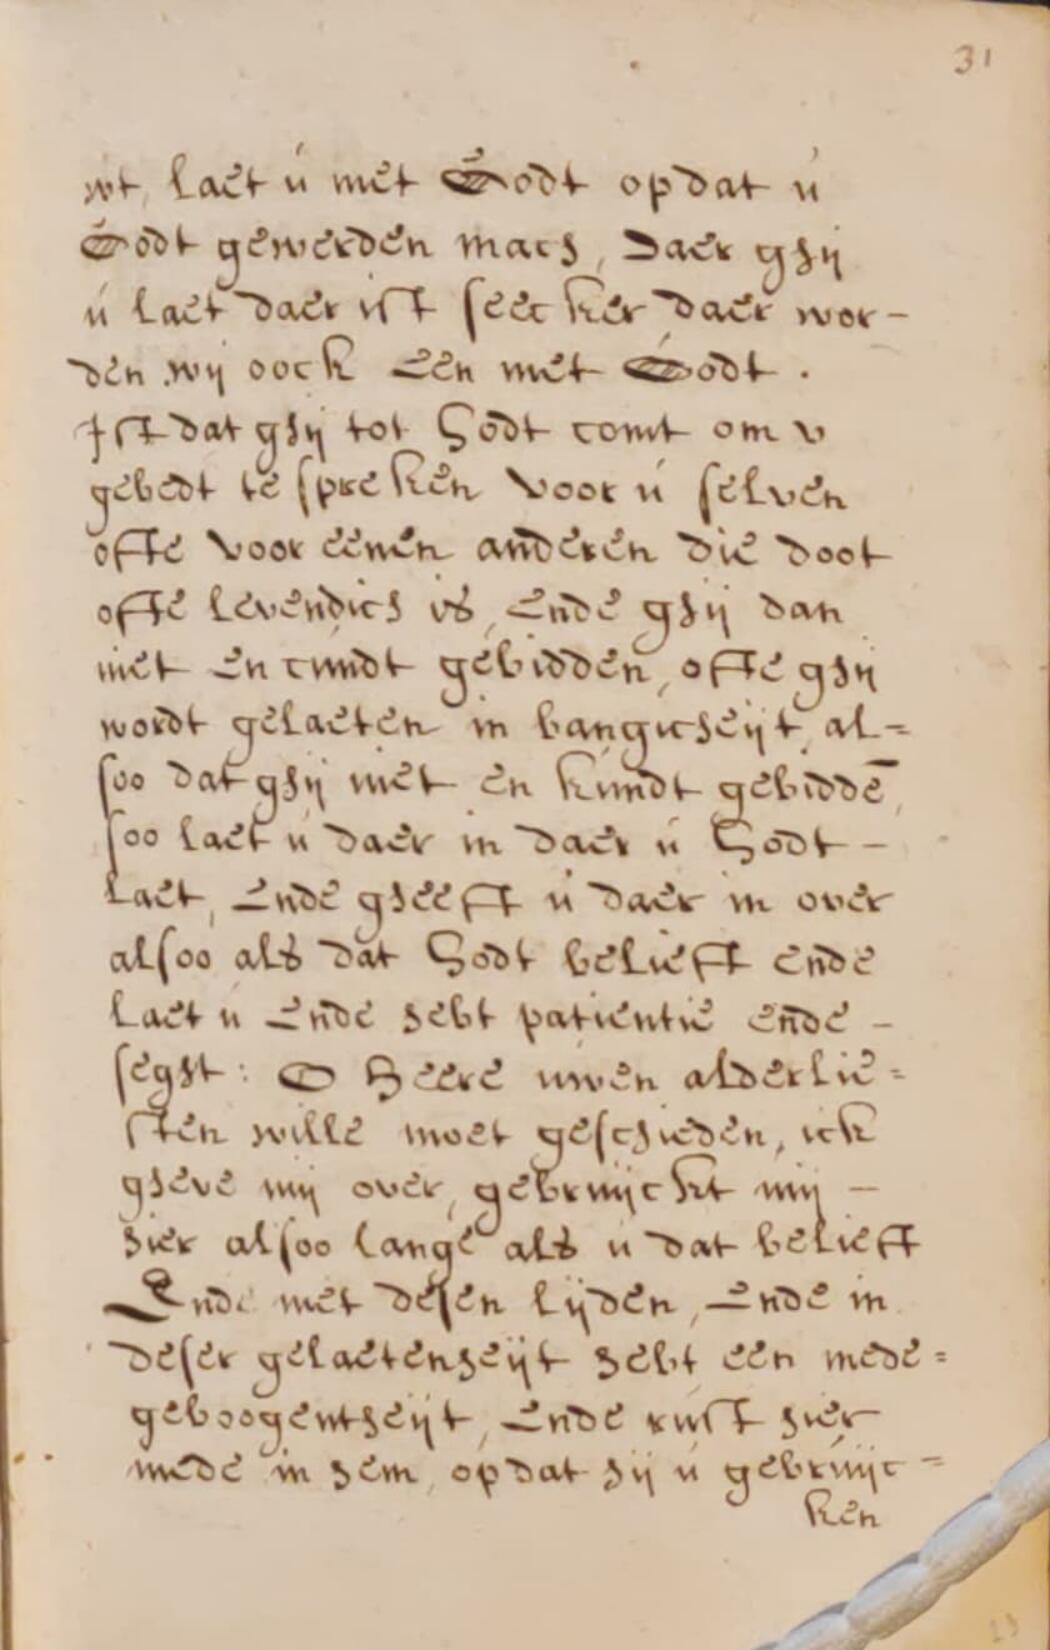 31
wt, laet ú met Godt opdat ú
Godt gewerden mach, Daer ghij
ú laet daer ist seecker daer wor-
den wij oock een met Godt.
Ist dat ghij tot Godt comt om v
gebedt te spreken voor ú selven
ofte voor eenen anderen die doot
ofte levendich is, ende ghij dan
niet en cundt gebidden, ofte ghij
wordt gelaeten in bangicheijt, al=
soo dat ghij niet en kundt gebiddē,
soo laet ú daer in daer ú Godt -
laet, Ende gheeft ú daer in over
alsoo als dat Godt belieft ende
laet ú Ende hebt patientie ende -
seght: O Heere uwen alderlie=
sten wille moet geschieden, ick
gheve mij over, gebruijckt mij -
hier alsoo lange als ú dat belieft
Ende met desen lijden, Ende in
deser gelaetenheijt hebt een mede=
geboogentheijt, Ende rust hier
mede in hem, opdat hij ú gebruijc=
ken